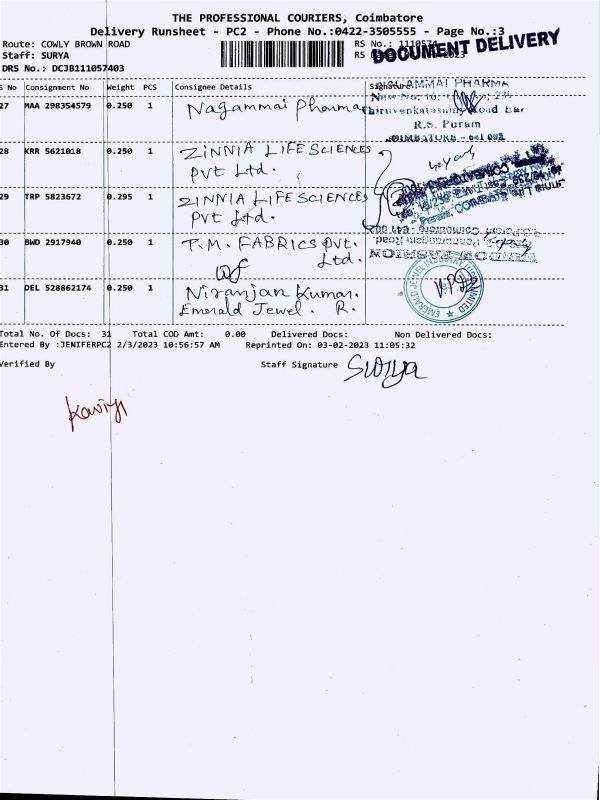 THE PROFESSIONAL COURIERS, Coimbatore
Delivery Runsheet - PC2 - Phone No.:0422-3505555 - Page No.:3
Route: COWLY BROWN ROAD
RS No.: 1110574
Staff: SURYA
RS
DOCUMENT DELIVERY
DRS No.: DCJB111057403
S No Consignment No Weight PCS Consignee Details signature
27 MAA 298354579 0.250 1 Nagammai Pharma
NAGAMMAI PHARMA
Thiruvenkatasamy Road East
R.S. Puram
COIMBATORE - 641 002
28 KRR 5621018 0.250 1 ZINNIA LIFESCIENCES
Pvt Ltd.
29 TRP 5823672 0.295 1 ZINNIA LIFESCIENCES
Pvt Ltd.
30 BWD 2917940 0.250 1 T.M. FABRICS Pvt.
Ltd.
WINDSOR FASHION
31 DEL 528862174 0.250 1 Niranjan Kumar.
Emerald Jewel. R.
EMERALD JEWEL INDUSTRY INDIA LIMITED
Total No. Of Docs: 31 Total COD Amt: 0.00 Delivered Docs: Non Delivered Docs:
Entered By :JENIFERPC2 2/3/2023 10:56:57 AM Reprinted On: 03-02-2023 11:05:32
Verified By Staff Signature Surya